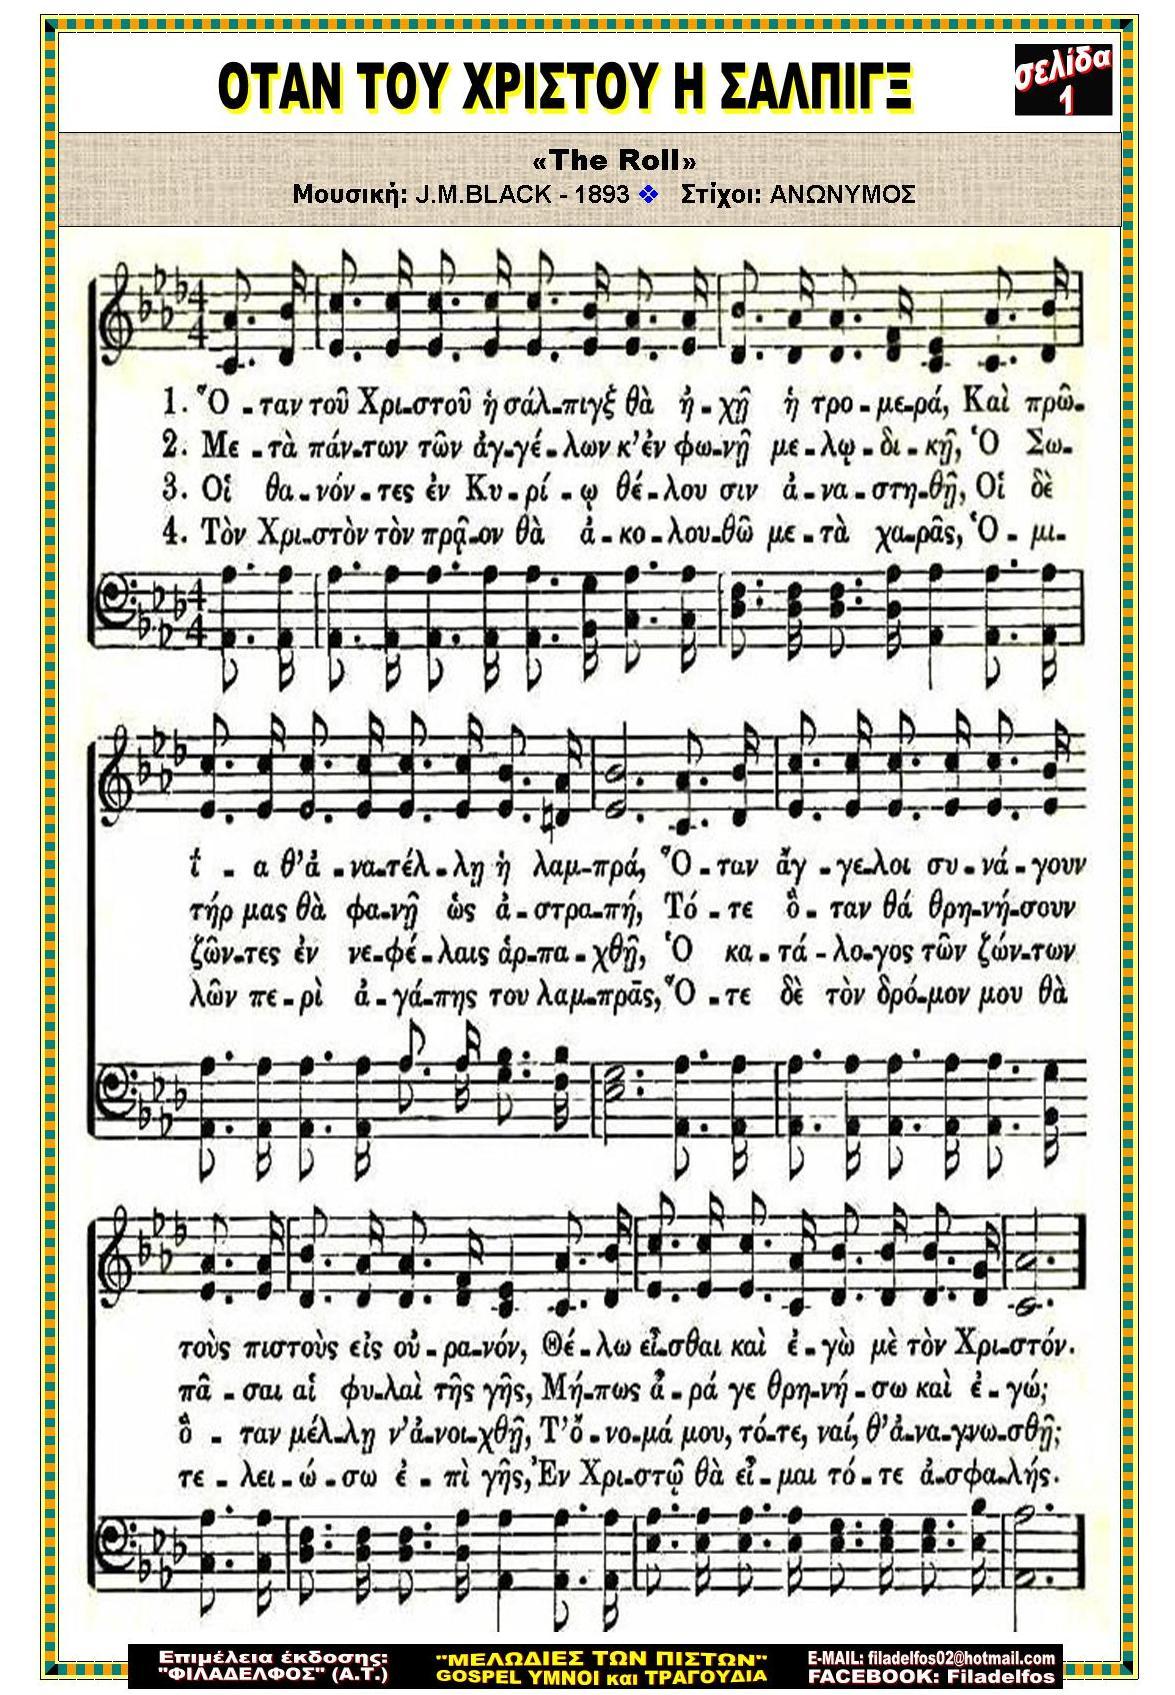 ΟΤΑΝ ΤΟΥ ΧΡΙΣΤΟΥ Η ΣΑΛΠΙΓΞ
σελίδα
1
«The Roll»
Μουσική: J.M.BLACK - 1893 ❖ Στίχοι: ΑΝΩΝΥΜΟΣ
1. Ὅ - ταν τοῦ Χρι-στοῦ ἡ σάλ-πιγξ θὰ ἠ-χῇ ἡ τρο-με-ρά, Καὶ πρω-
2. Με-τὰ πάν-των τῶν ἀγ-γέ-λων κ'ἐν φω-νῇ με-λῳ-δι-κῇ, Ὁ Σω-
3. Οἱ θα-νόν-τες ἐν Κυ-ρί-ῳ θέ-λου σιν ἀ-να-στη-θῇ, Οἱ δὲ
4. Τὸν Χρι-στὸν τὸν πρᾷ-ον θὰ ἀ-κο-λου-θῶ με-τὰ χα-ρᾶς, Ὁ-μι-
ΐ - α θ'ἀ-να-τέλ-λῃ ἡ λαμ-πρά, Ὅ-ταν ἄγ-γε-λοι συ-νά-γουν
τήρ μας θὰ φα-νῇ ὡς ἀ-στρα-πή, Τό-τε ὅ-ταν θά θρη-νή-σουν
ζῶν-τες ἐν νε-φέ-λαις ἁρ-πα-χθῇ, Ὁ κα-τά-λο-γος τῶν ζών-των
λῶν πε-ρὶ ἀ-γά-πης του λαμ-πρᾶς, Ὅ-τε δὲ τὸν δρό-μον μου θὰ
τοὺς πιστοὺς εἰς οὐ-ρα-νόν, Θέ-λω εἶ-σθαι καὶ ἐ-γὼ μὲ τὸν Χρι-στόν.
πᾶ-σαι αἱ φυ-λαὶ τῆς γῆς, Μή-πως ἆ-ρά γε θρη-νή-σω καὶ ἐ-γώ;
ὅ - ταν μέλ-λῃ ν'ἀ-νοι-χθῇ, Τ'ὄ-νο-μά μου, τό-τε, ναί, θ'ἀ-να-γνω-σθῇ;
τε-λει-ώ-σω ἐ-πὶ γῆς, Ἐν Χρι-στῷ θὰ εἶ-μαι τό-τε ἀ-σφα-λής.
Επιμέλεια έκδοσης:
"ΦΙΛΑΔΕΛΦΟΣ" (Α.Τ.)
"ΜΕΛΩΔΙΕΣ ΤΩΝ ΠΙΣΤΩΝ"
GOSPEL ΥΜΝΟΙ και ΤΡΑΓΟΥΔΙΑ
E-MAIL: filadelfos02@hotmail.com
FACEBOOK: Filadelfos